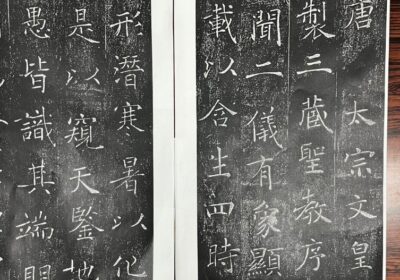 唐太宗文皇
製三藏聖教序
聞二儀有象顯
載以含生四時
形潛寒暑以化
是以窺天鑒地
愚皆識其端